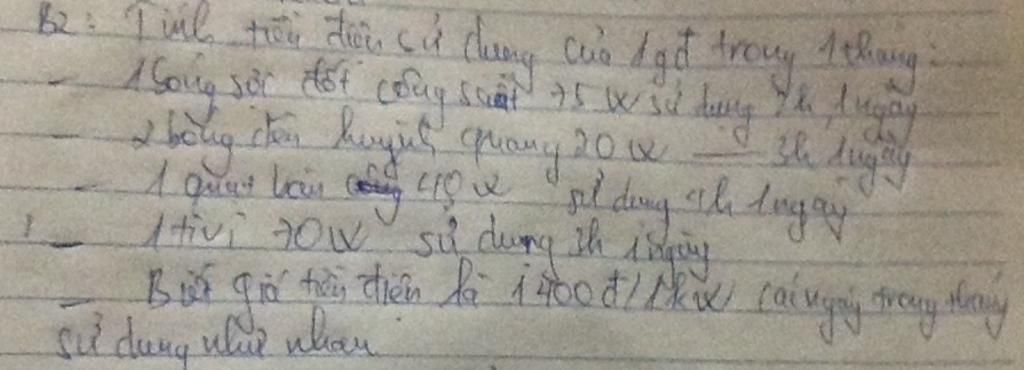 B2: Tính tiền điện sử dụng của 1gđ trong 1 tháng:
- 1 bóng sợi đốt công suất 75W sử dụng 2h, 1ngày
- 2 bóng đèn huỳnh quang 20W — 3h 1ngày
- 1 quạt bàn 40W sử dụng 4h 1ngày
- 1 tivi 70W sử dụng 2h 1ngày
- Biết giá tiền điện là 1400đ/1kW các ngày trong tháng
sử dụng như nhau